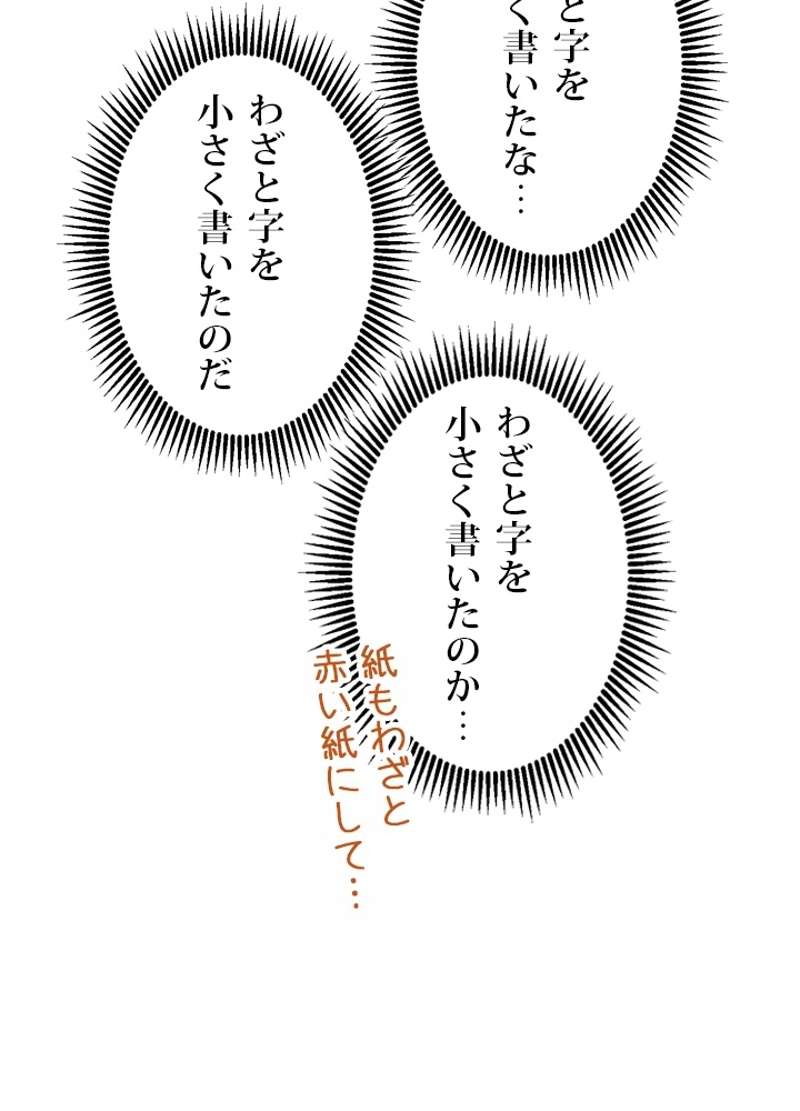 と字を
く書いたな…
わざと字を
小さく書いたのだ
わざと字を
小さく書いたのか…
紙もわざと
赤い紙にして…